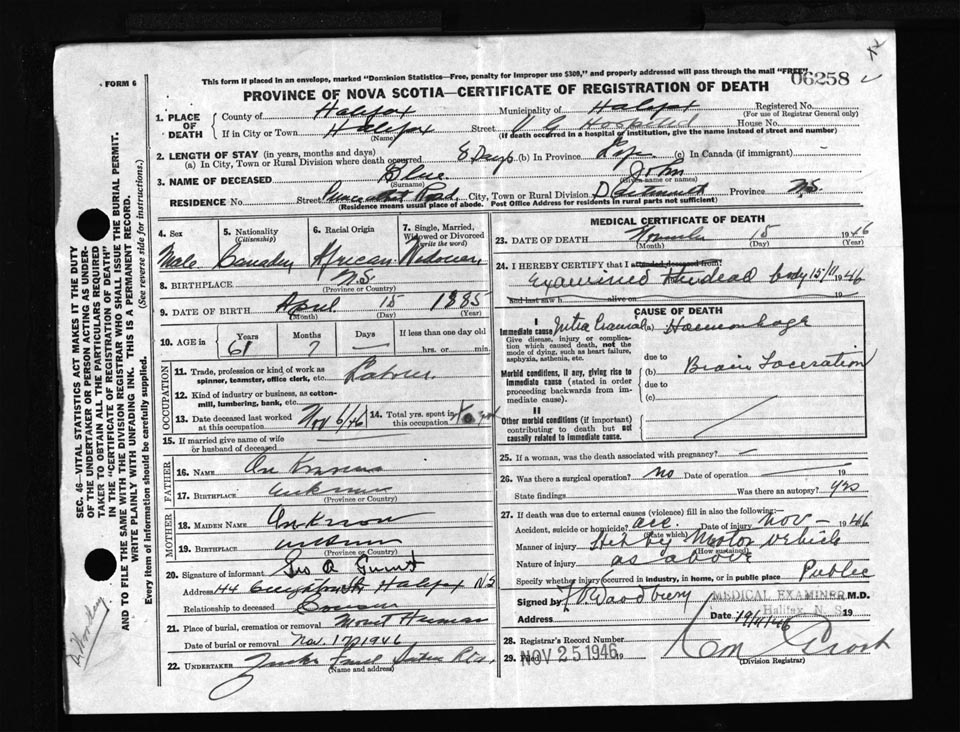 FORM 6
This form if placed in an envelope, marked "Dominion Statistics—Free, penalty for improper use $300," and properly addressed will pass through the mail "FREE"
06258
PROVINCE OF NOVA SCOTIA—CERTIFICATE OF REGISTRATION OF DEATH
1. PLACE OF DEATH
County of Halifax Municipality of Halifax Registered No.
(For use of Registrar General only)
If in City or Town Halifax Street V G Hospital House No.
(Name) (If death occurred in a hospital or institution, give the name instead of street and number)
2. LENGTH OF STAY (in years, months and days)
(a) In City, Town or Rural Division where death occurred 8 Days (b) In Province Life (c) In Canada (if immigrant)
3. NAME OF DECEASED Blue John
(Surname) (Given name or names)
RESIDENCE No. Street Road, City, Town or Rural Division Dartmouth Province N.S.
(Residence means usual place of abode. Post Office Address for residents in rural parts not sufficient)
4. Sex Male
5. Nationality (Citizenship) Canadian
6. Racial Origin African
7. Single, Married, Widowed or Divorced (write the word) Widower
8. BIRTHPLACE N.S.
(Province or Country)
9. DATE OF BIRTH April 15 1885
(Month) (Day) (Year)
10. AGE in Years 61 Months 7 Days — If less than one day old hrs. or min.
OCCUPATION
11. Trade, profession or kind of work as spinner, teamster, office clerk, etc. Laborer
12. Kind of industry or business, as cotton-mill, lumbering, bank, etc.
13. Date deceased last worked at this occupation Nov 6/46
14. Total yrs. spent in this occupation
15. If married give name of wife or husband of deceased
FATHER
16. Name Unknown
17. Birthplace unknown
(Province or Country)
MOTHER
18. Maiden Name Unknown
19. Birthplace unknown
(Province or Country)
20. Signature of informant Geo A
Address 44 Halifax N S
Relationship to deceased Cousin
21. Place of burial, cremation or removal Mount Herman
Date of burial or removal Nov. 17/1946
22. UNDERTAKER
(Name and address)
MEDICAL CERTIFICATE OF DEATH
23. DATE OF DEATH November 15 1946
(Month) (Day) (Year)
24. I HEREBY CERTIFY that I attended deceased from:
Examined the dead body 15/11 1946
and last saw h alive on 19
CAUSE OF DEATH
I
Immediate cause (a) Intra Cranial Haemorrhage
Give disease, injury or complication which caused death, not the mode of dying, such as heart failure, asphyxia, asthenia, etc.
due to
(b) Brain Laceration
Morbid conditions, if any, giving rise to immediate cause (stated in order proceeding backwards from immediate cause).
due to
(c)
II
Other morbid conditions (if important) contributing to death but not causally related to immediate cause.
25. If a woman, was the death associated with pregnancy? —
26. Was there a surgical operation? no Date of operation —
State findings Was there an autopsy? yes
27. If death was due to external causes (violence) fill in also the following:—
Accident, suicide or homicide? acc. Date of injury Nov — 1946
(State which)
Manner of injury Hit by Motor vehicle
(How sustained)
Nature of injury as above
Specify whether injury occurred in industry, in home, or in public place Public
Signed by Woodbury MEDICAL EXAMINER M.D.
Halifax, N. S.
Address Date 19/11/46 19
28. Registrar's Record Number
29. Filed NOV 25 1946 19
(Division Registrar)
SEC. 46—VITAL STATISTICS ACT MAKES IT THE DUTY OF THE UNDERTAKER OR PERSON ACTING AS UNDERTAKER TO OBTAIN ALL THE PARTICULARS REQUIRED IN THE "CERTIFICATE OF REGISTRATION OF DEATH" AND TO FILE THE SAME WITH THE DIVISION REGISTRAR WHO SHALL ISSUE THE BURIAL PERMIT.
WRITE PLAINLY WITH UNFADING INK. THIS IS A PERMANENT RECORD.
Every item of Information should be carefully supplied. (See reverse side for instructions.)